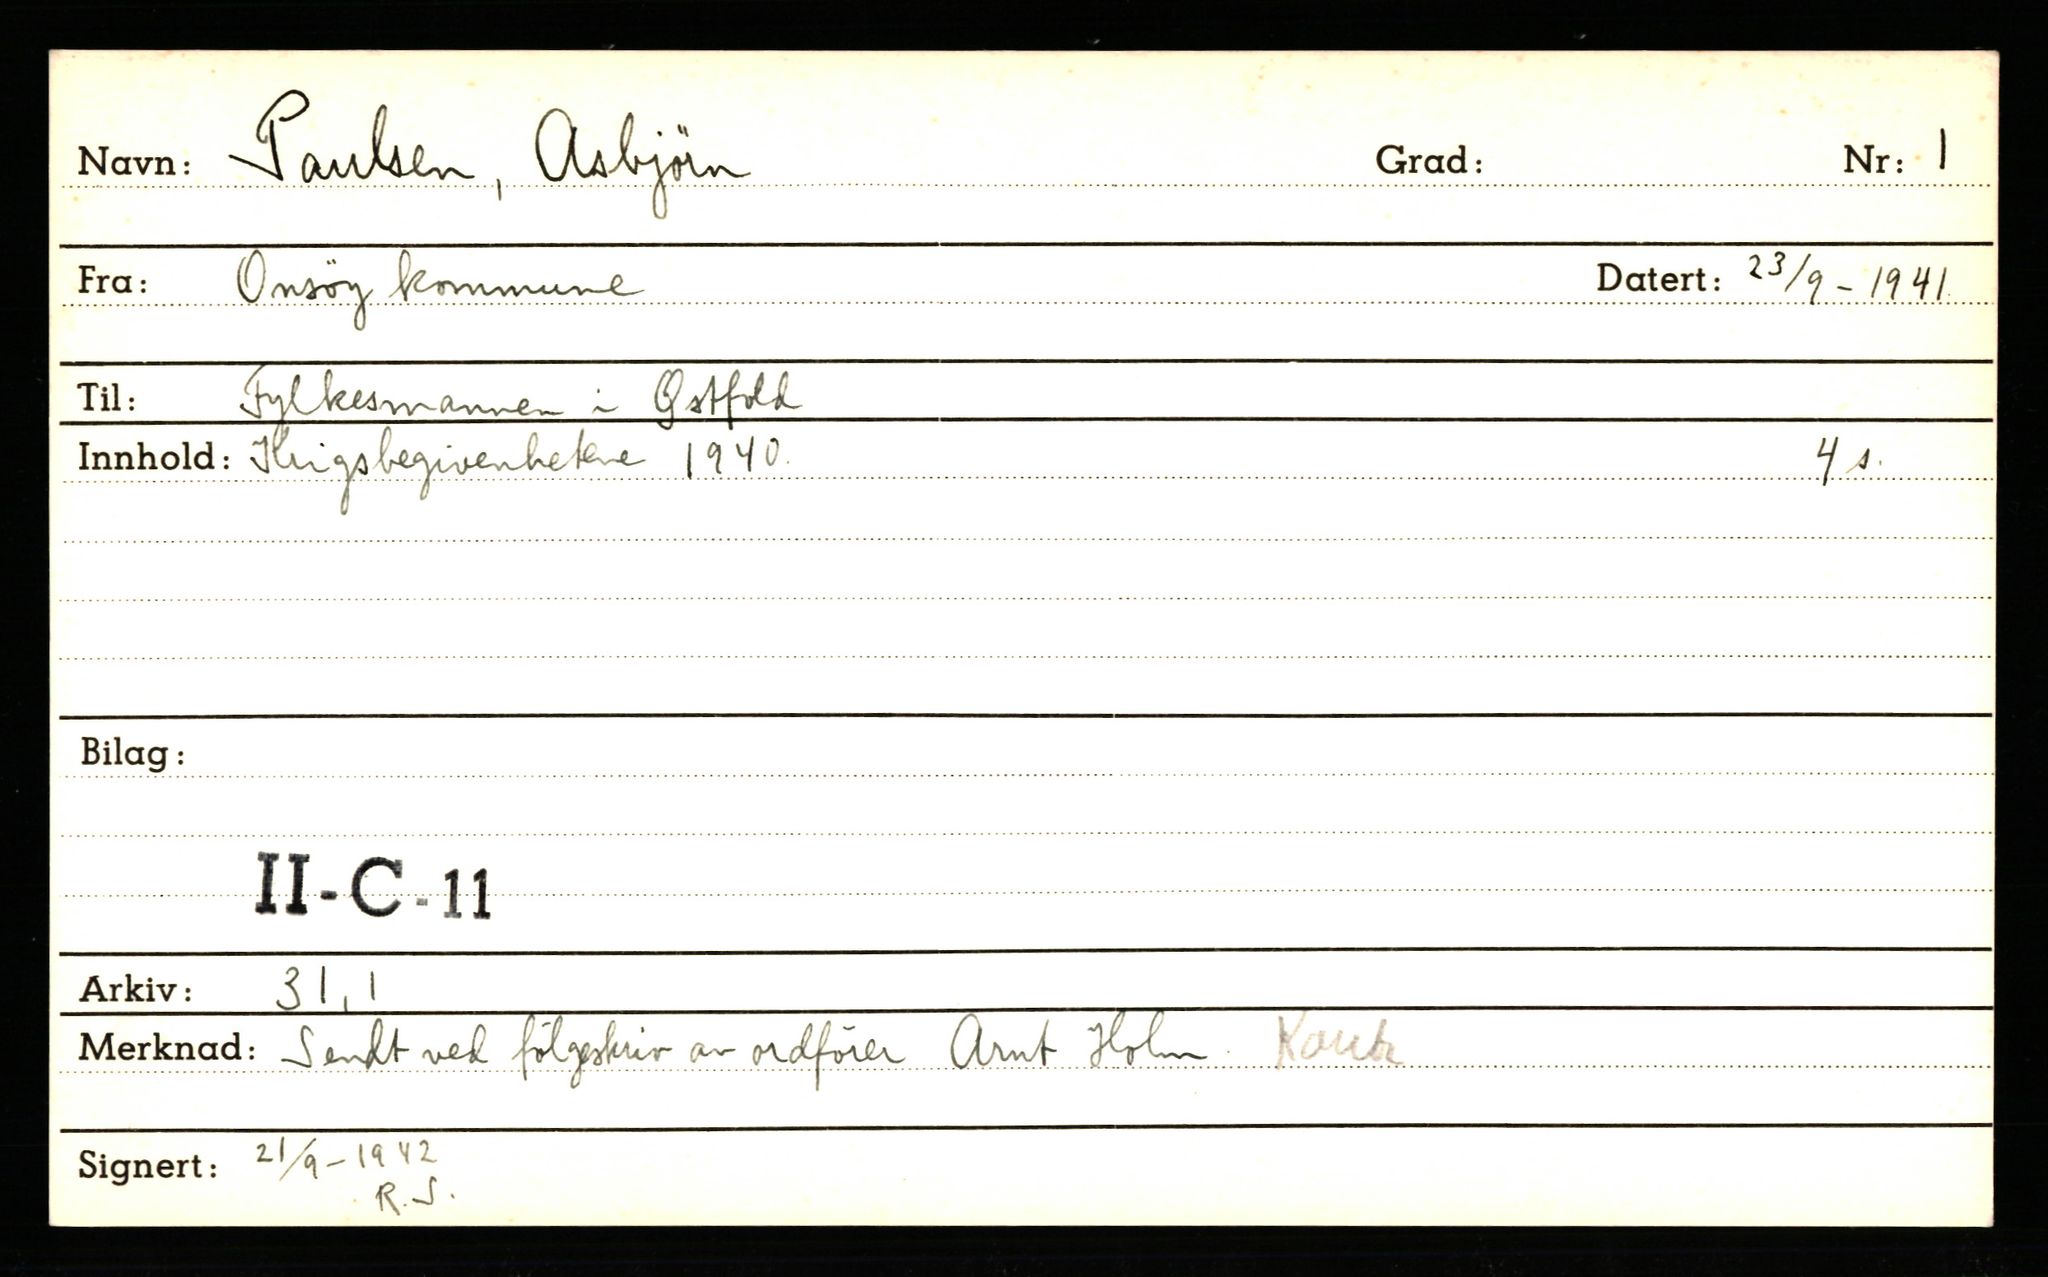 Navn: Paulsen, Asbjörn Grad: Nr: 1
Fra: Onsöy kommune Datert: 23/9 - 1941
Til: Fylkesmannen i Østfold
Innhold: Krigsbegivenhetene 1940. 4 s.
Bilag:
II-C-11
Arkiv: 31,1
Merknad: Sendt ved fölgeskriv av ordförer Arnt Holm.
Signert: 21/9 - 1942
R.S.